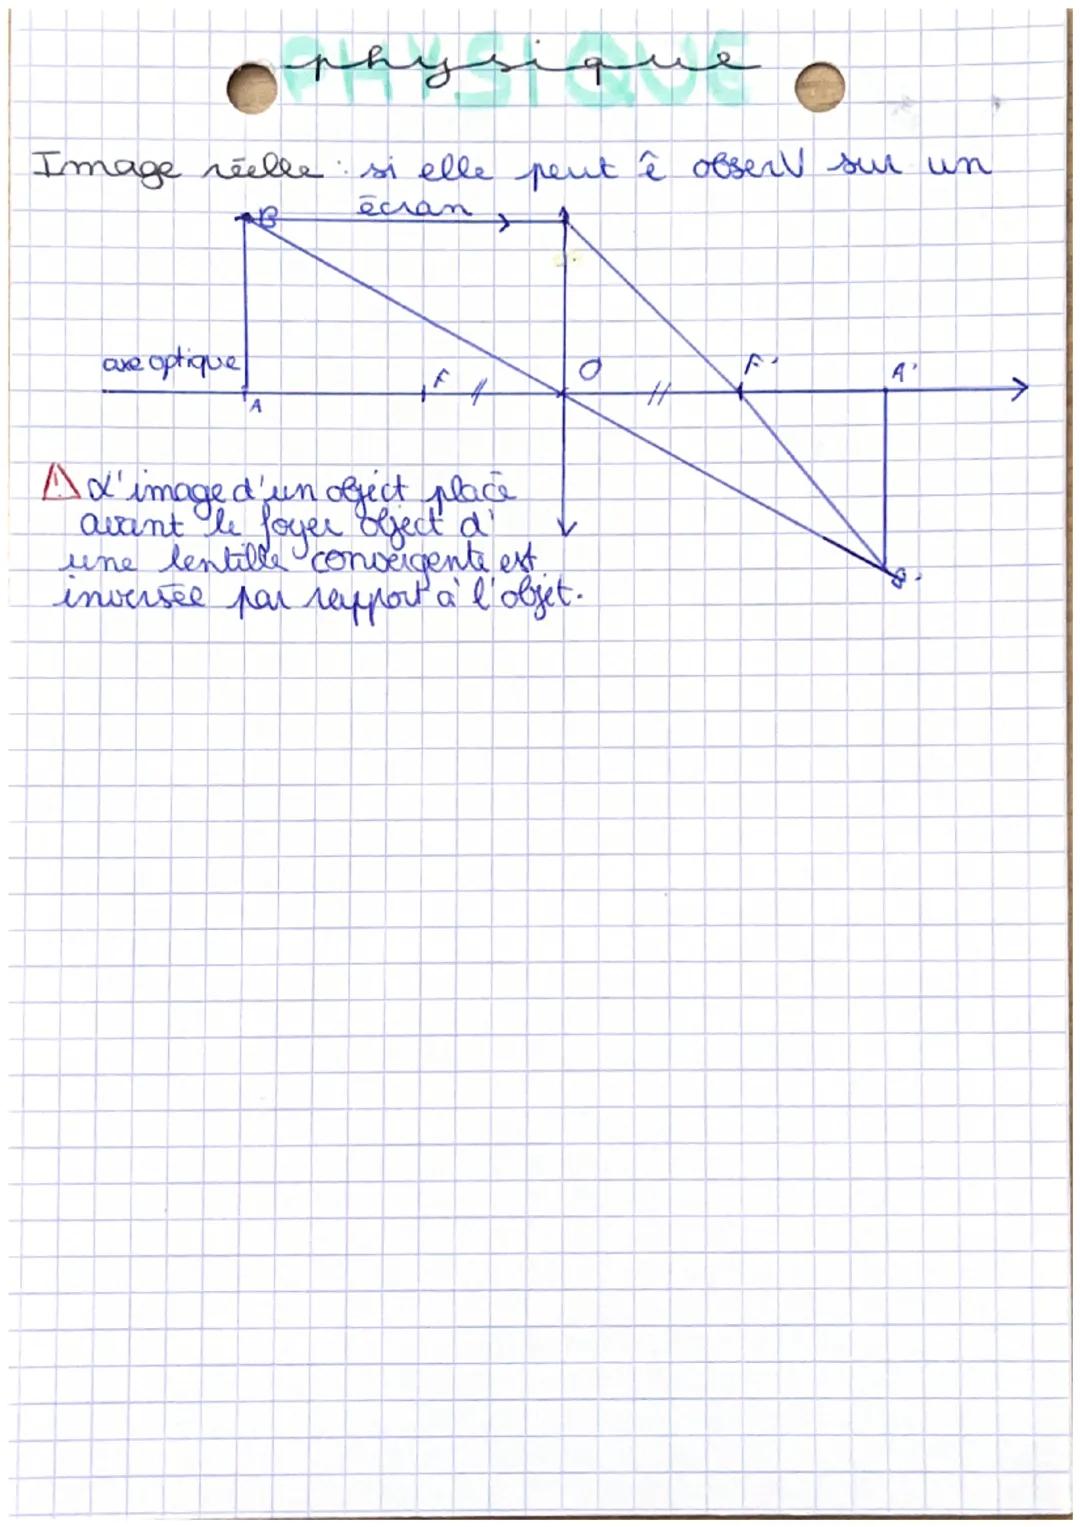 PHYSIQUE
physique
Image réelle : si elle peut ê observ sur un
écran
B
axe optique
A
F
O
F'
A'
B'
L'image d'un object placé
avant le foyer object d'
une lentille convergente est
inversée par rapport à l'objet.